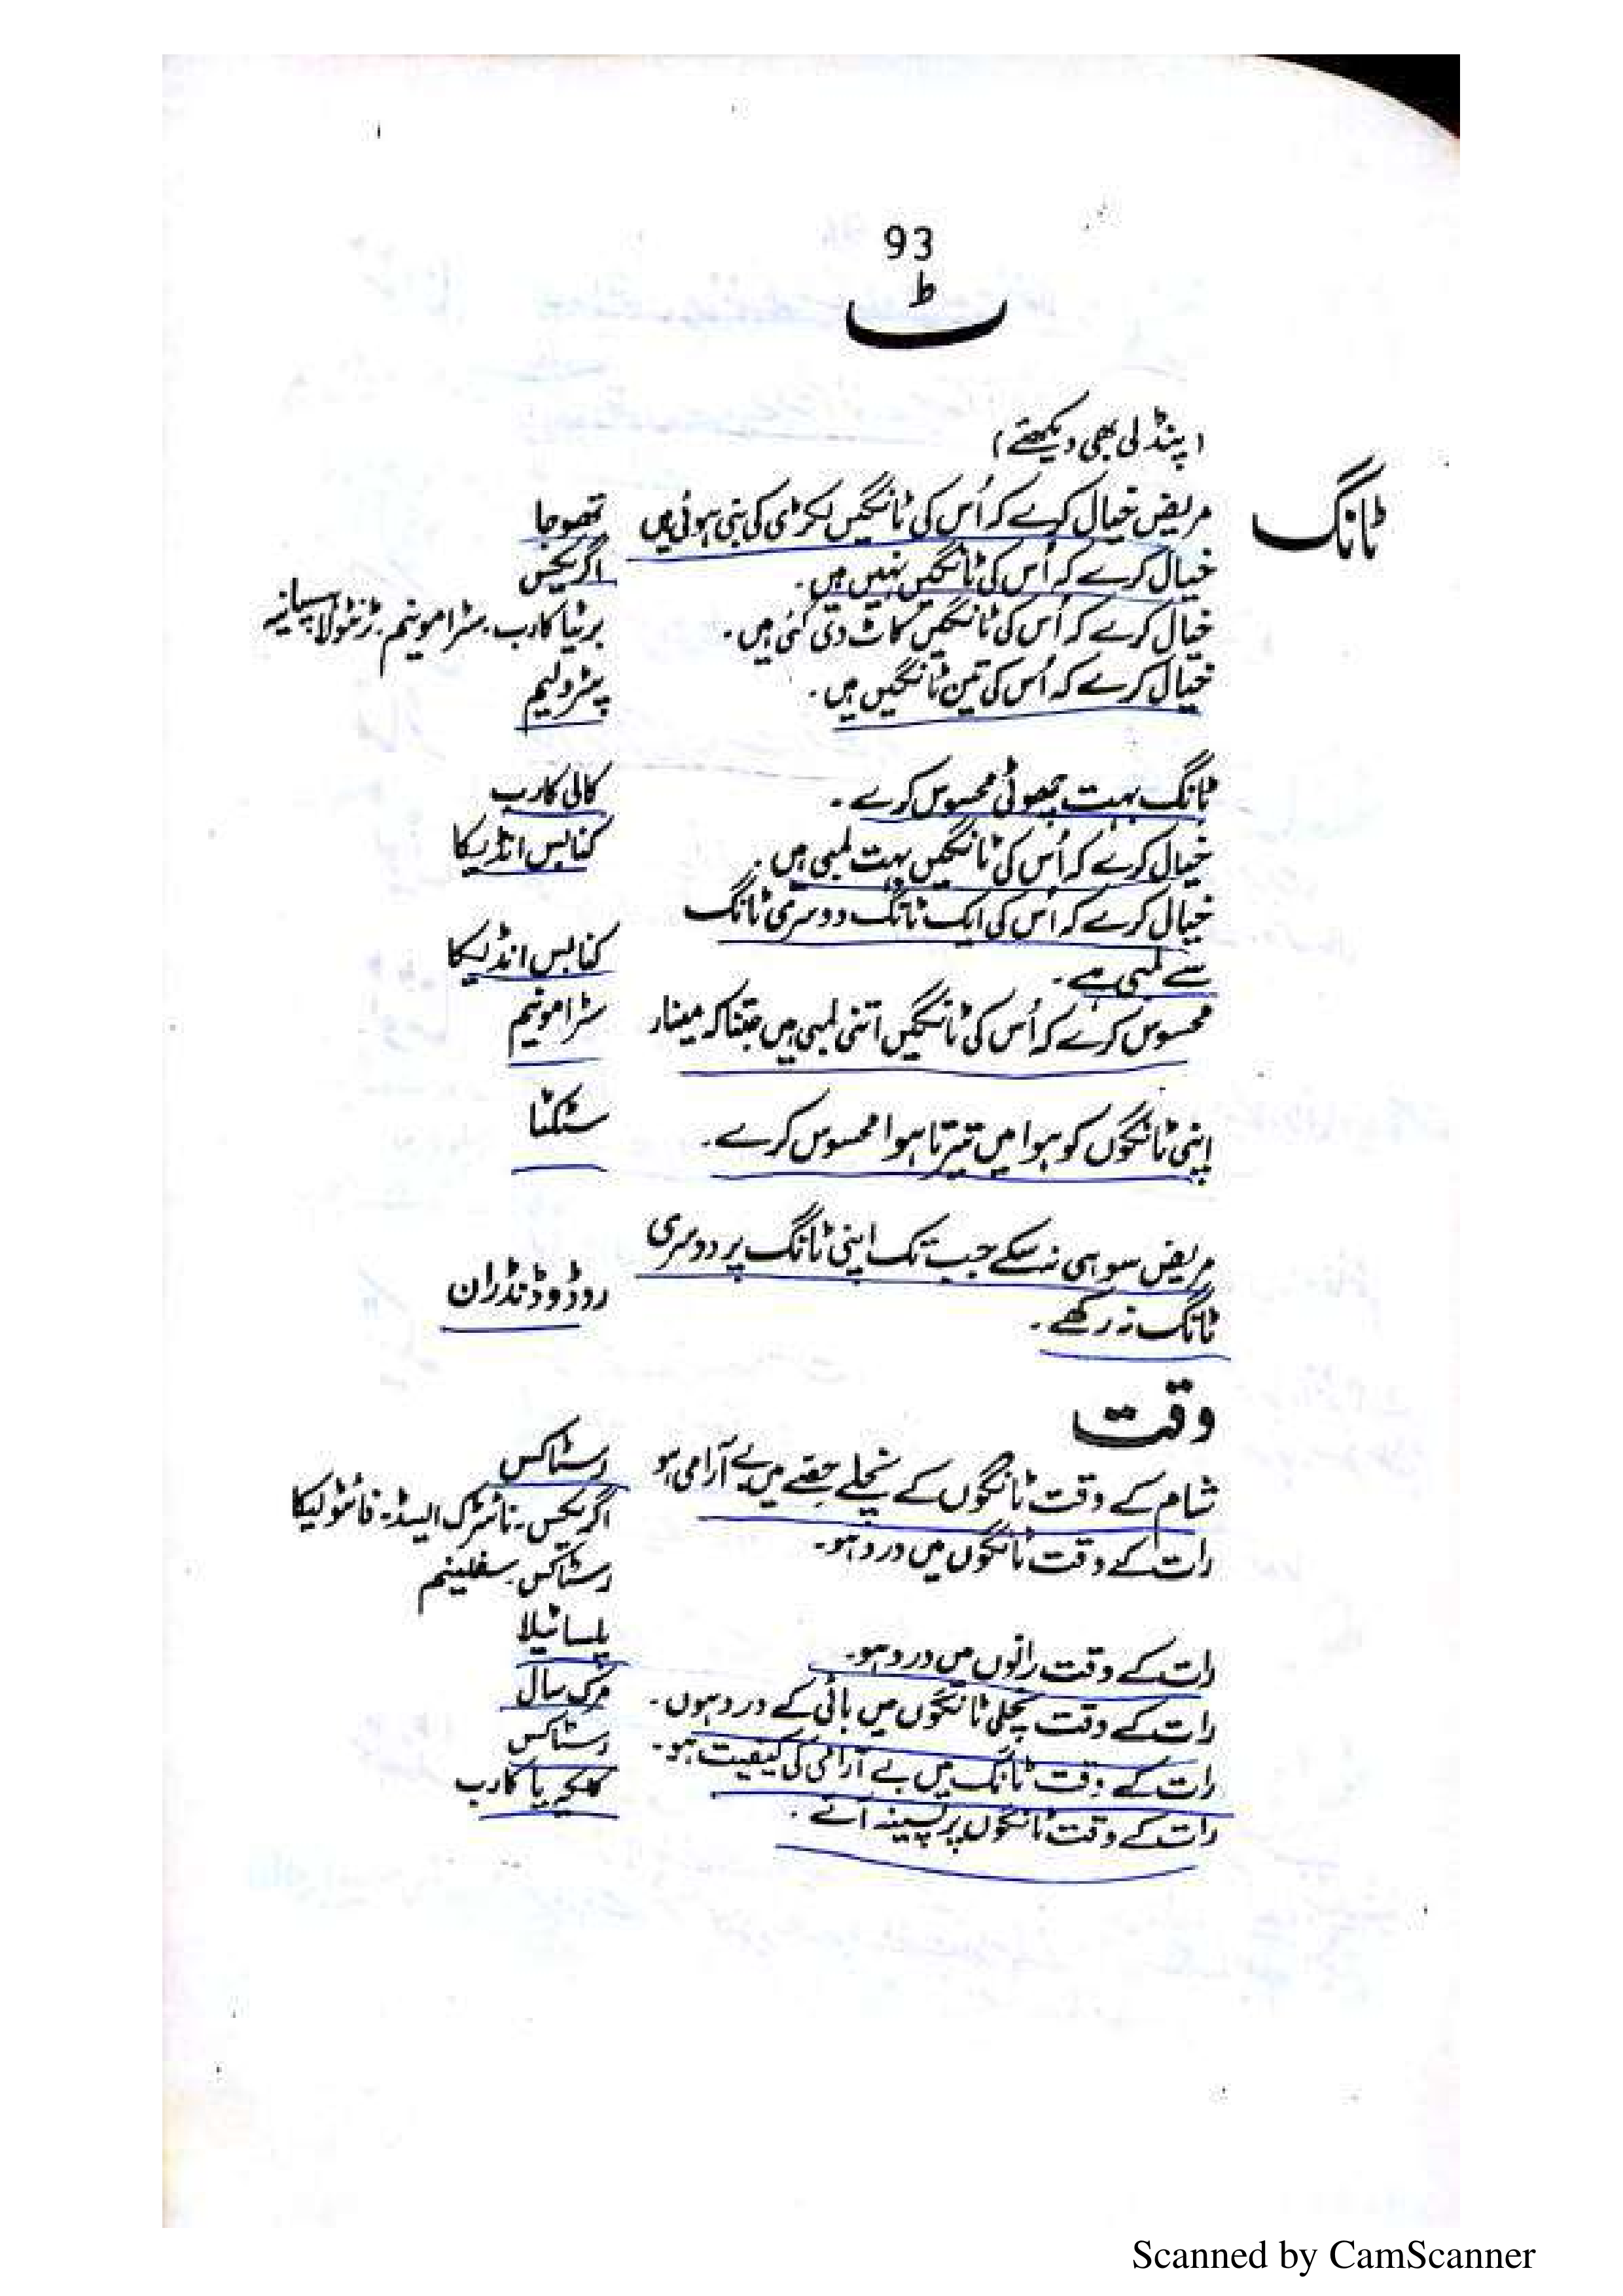 93
ٹ
(پنڈلی بھی دیکھئے)
ٹانگ
مریض خیال کرے کہ اُس کی ٹانگیں لکڑی کی بنی ہوئی ہیں تھوجا
خیال کرے کہ اُس کی ٹانگیں نہیں ہیں۔ اگریکس
خیال کرے کہ اُس کی ٹانگیں کاٹ دی گئی ہیں۔ برٹیا کارب۔ سٹرامونیم۔
خیال کرے کہ اُس کی تین ٹانگیں ہیں۔ پٹرولیم
ٹانگ بہت چھوٹی محسوس کرے۔ کالی کارب
خیال کرے کہ اُس کی ٹانگیں بہت لمبی ہیں۔ کنابس انڈیکا
خیال کرے کہ اُس کی ایک ٹانگ دوسری ٹانگ
سے لمبی ہے۔ کنابس انڈیکا
محسوس کرے کہ اُس کی ٹانگیں اتنی لمبی ہیں جتنا کہ مینار سٹرامونیم
اپنی ٹانگوں کو ہوا میں تیرتا ہوا محسوس کرے۔ سٹکٹا
مریض سو ہی نہ سکے جب تک اپنی ٹانگ پر دوسری
ٹانگ نہ رکھے۔ روڈوڈنڈران
وقت
شام کے وقت ٹانگوں کے نچلے حصّے میں بے آرامی ہو رسٹاکس
رات کے وقت ٹانگوں میں درد ہو۔ اگریکس۔ نائٹرک ایسڈ۔ فائٹولیکا
رسٹاکس۔ سفلینم
رات کے وقت رانوں میں درد ہو۔ پلساٹیلا
رات کے وقت پچھلی ٹانگوں میں بائی کے درد ہوں۔ مرک سال
رات کے وقت ٹانگ میں بے آرامی کی کیفیت ہو۔ رسٹاکس
رات کے وقت ٹانگوں پر پسینہ آئے۔ کلکیریا کارب
Scanned by CamScanner